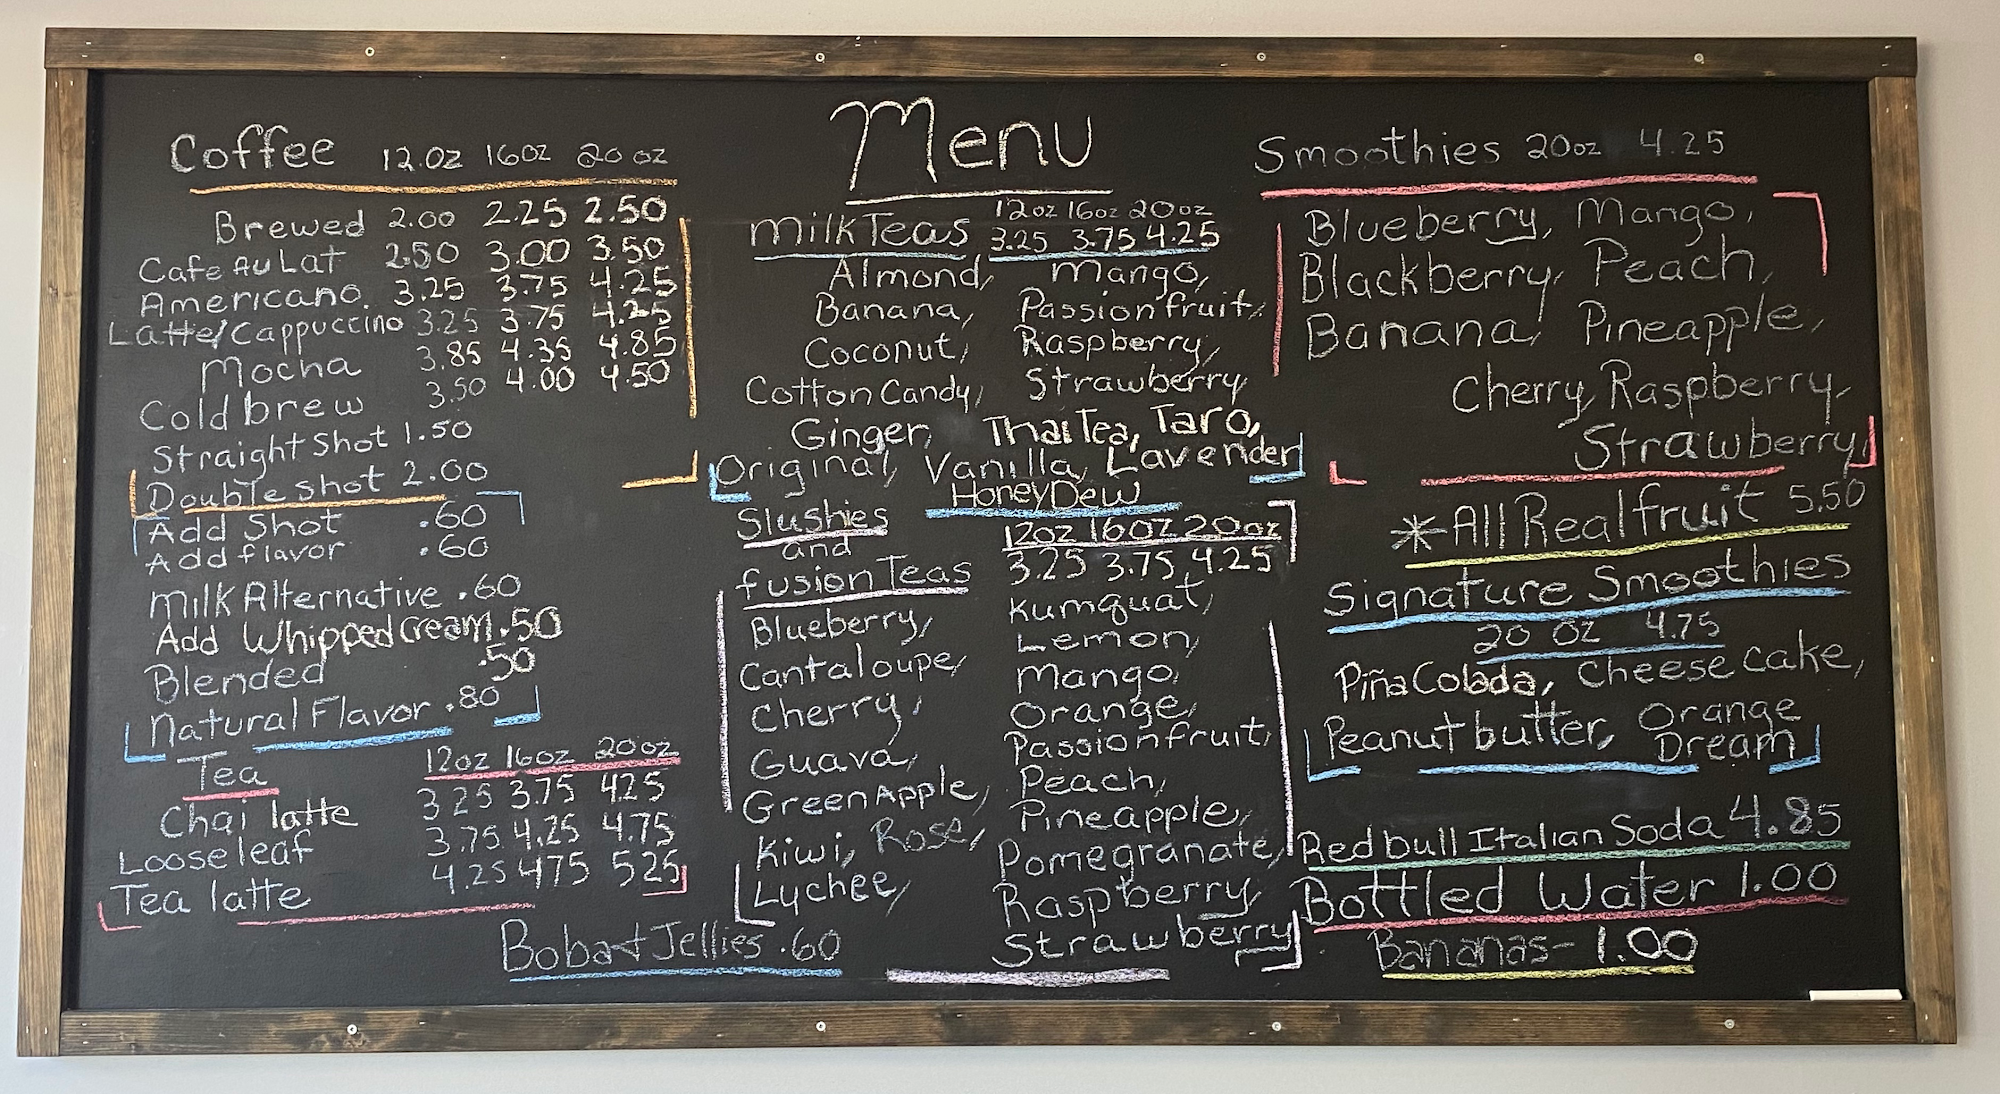 Menu
Coffee 12.oz 16oz 20oz
Brewed 2.00 2.25 2.50
Cafe Au Lat 2.50 3.00 3.50
Americano. 3.25 3.75 4.25
Latte/Cappuccino 3.25 3.75 4.25
Mocha 3.85 4.35 4.85
Cold brew 3.50 4.00 4.50
Straight Shot 1.50
Double shot 2.00
Add Shot .60
Add flavor .60
Milk Alternative .60
Add Whipped cream .50
Blended .50
Natural Flavor .80
Tea 12oz 16oz 20oz
Chai latte 3.25 3.75 4.25
Looseleaf 3.75 4.25 4.75
Tea latte 4.25 4.75 5.25
Boba & Jellies .60
12oz 16oz 20oz
Milk Teas 3.25 3.75 4.25
Almond, Mango,
Banana, Passionfruit,
Coconut, Raspberry,
Cotton Candy, Strawberry
Ginger, Thai Tea, Taro,
Original, Vanilla, Lavender
HoneyDew
Slushies 12oz 16oz 20oz
and 3.25 3.75 4.25
fusion Teas
Blueberry, Kumquat,
Cantaloupe, Lemon,
Cherry, Mango,
Guava, Orange,
Green Apple, Passionfruit,
Kiwi, Rose, Peach,
Lychee, Pineapple,
Pomegranate,
Raspberry,
Strawberry
Smoothies 20oz 4.25
Blueberry, Mango,
Blackberry, Peach,
Banana, Pineapple,
Cherry, Raspberry,
Strawberry,
*All Real fruit 5.50
Signature Smoothies
20 oz 4.75
Piña Colada, Cheese cake,
Peanut butter, Orange Dream
Redbull Italian Soda 4.85
Bottled Water 1.00
Bananas- 1.00